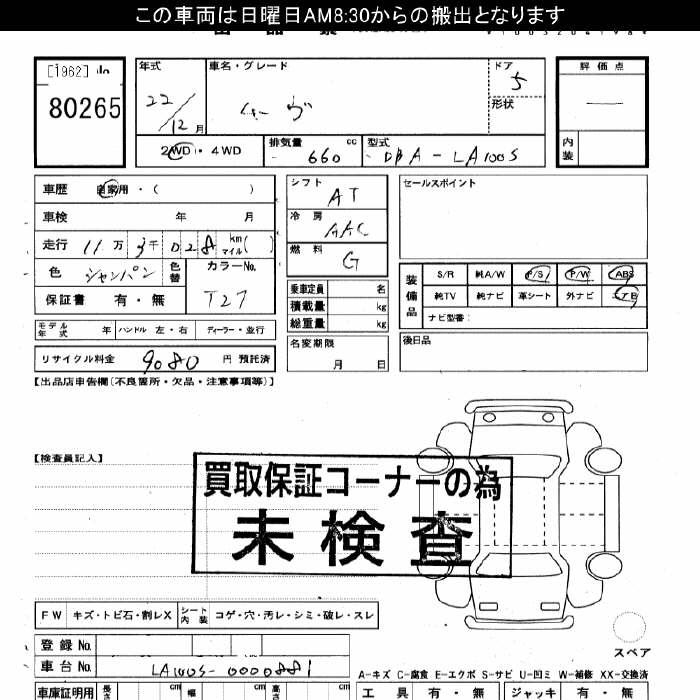 この車両は日曜日AM8:30からの搬出となります
[1962]
80265
年式
22/12月
車名・グレード
ムーヴ
ドア
5
形状
評価点
内装
2WD・4WD
排気量
660 cc
型式
DBA-LA100S
車歴 自家用・( )
車検 年 月
走行 11万3千028 km マイル( )
色 シャンパン 色替
カラーNo.
T27
保証書 有・無
シフト
AT
冷房
AAC
燃料
G
乗車定員 名
積載量 kg
総重量 kg
名変期限
月 日
セールスポイント
装備品
S/R 純A/W P/S P/W ABS
純TV 純ナビ 革シート 外ナビ エアB
ナビ型番:
後日品
モデル年式 年 ハンドル 左・右 ディーラー・並行
リサイクル料金 9080 円 預託済
【出品店申告欄(不良箇所・欠品・注意事項等)】
【検査員記入】
買取保証コーナーの為
未検査
FW キズ・トビ石・割レX シート内装 コゲ・穴・汚レ・シミ・破レ・スレ
スペア
登録No.
車台No. LA100S-0000881
A-キズ C-腐食 E-エクボ S-サビ U-凹ミ W-補修 XX-交換済
車庫証明用 長さ cm 幅 cm 高さ cm
工具 有・無 ジャッキ 有・無